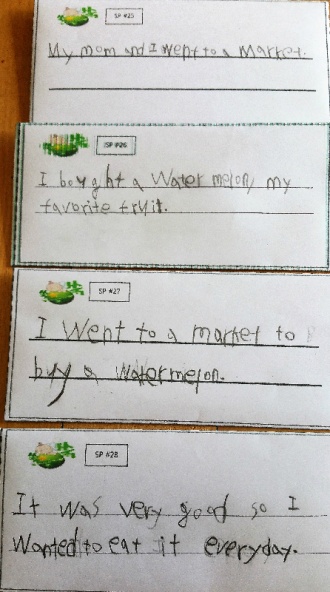 SP #25
My mom and I went to a Market.
SP #26
I bought a Water melon, my
favorite fruit.
SP #27
I Went to a market to
buy a watermelon.
SP #28
It was very good so I
Wanted to eat it everyday.